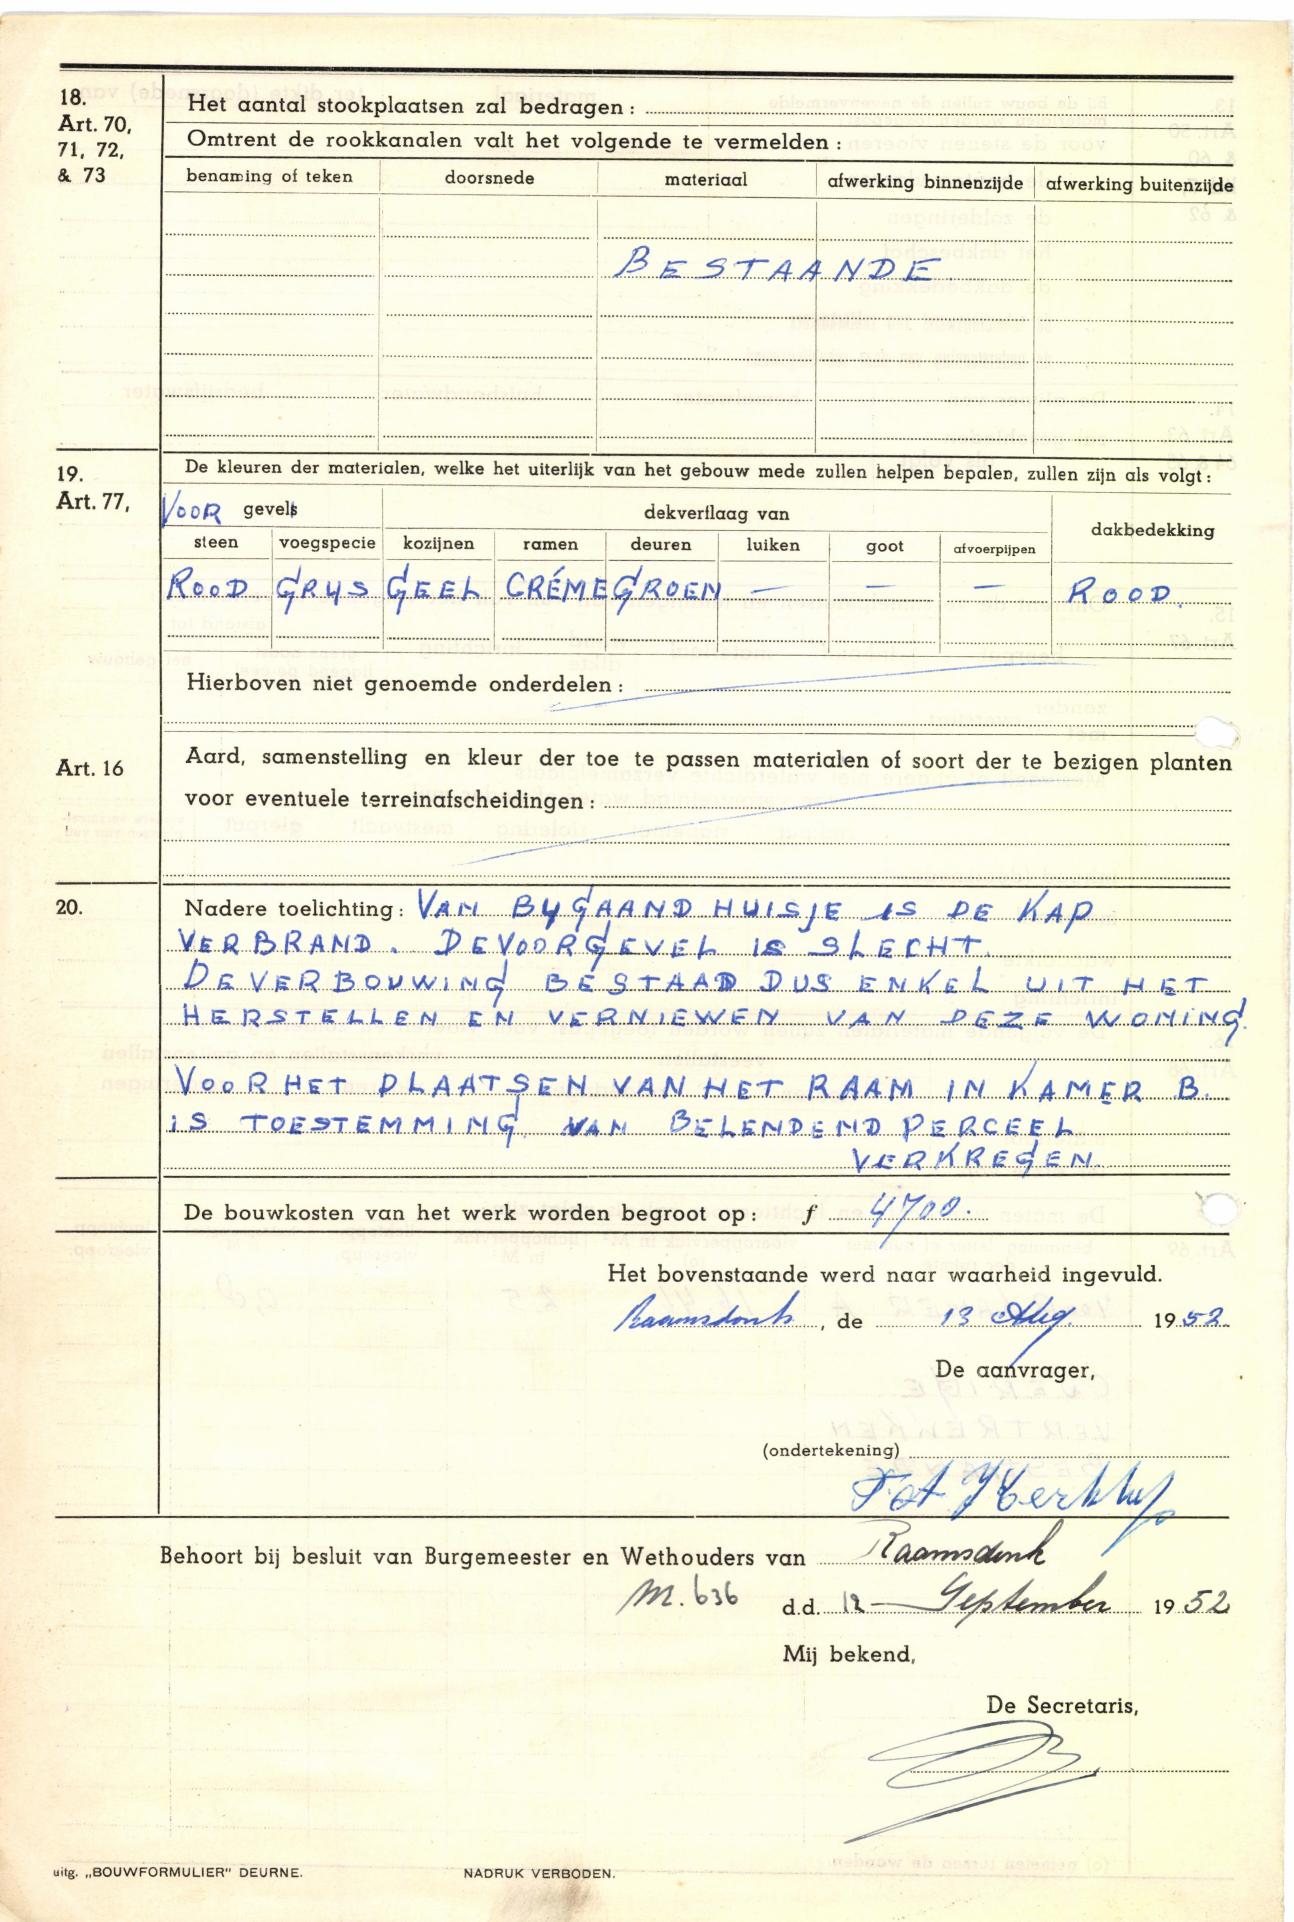 18.
Art. 70,
71, 72,
& 73
Het aantal stookplaatsen zal bedragen :
Omtrent de rookkanalen valt het volgende te vermelden :
benaming of teken doorsnede materiaal afwerking binnenzijde afwerking buitenzijde
BESTAANDE.
19.
Art. 77,
De kleuren der materialen, welke het uiterlijk van het gebouw mede zullen helpen bepalen, zullen zijn als volgt :
VOOR gevels dekverflaag van dakbedekking
steen voegspecie kozijnen ramen deuren luiken goot afvoerpijpen
ROOD GRYS GEEL CRÉME GROEN — — — ROOD.
Hierboven niet genoemde onderdelen :
Art. 16
Aard, samenstelling en kleur der toe te passen materialen of soort der te bezigen planten
voor eventuele terreinafscheidingen :
20.
Nadere toelichting : VAN BYGAAND HUISJE IS DE KAP
VERBRAND. DE VOORGEVEL IS SLECHT.
DE VERBOUWING BESTAAD DUS ENKEL UIT HET
HERSTELLEN EN VERNIEWEN VAN DEZE WONING.
VOOR HET PLAATSEN VAN HET RAAM IN KAMER B.
IS TOESTEMMING VAN BELENDEND PERCEEL
VERKREGEN.
De bouwkosten van het werk worden begroot op : f 4700.
Het bovenstaande werd naar waarheid ingevuld.
Raamsdonk, de 13 Aug. 1952.
De aanvrager,
(ondertekening)
Behoort bij besluit van Burgemeester en Wethouders van Raamsdonk
M. 636 d.d. 12 — September 1952
Mij bekend,
De Secretaris,
uitg. „BOUWFORMULIER" DEURNE. NADRUK VERBODEN.